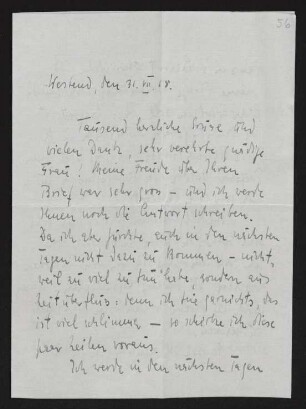 56
den 31. VII 18.
Tausend herzliche Grüsse und
vielen Dank, sehr verehrte, gnädige
Frau! Meine Freude über Ihren
Brief war sehr gross – und ich werde
Ihnen noch die Antwort schreiben.
Da ich aber fürchte, auch in den nächsten
Tagen nicht dazu zu kommen – nicht,
weil zu viel zu tun habe, sondern aus
Zeitüberfluss: denn ich tue garnichts, das
ist viel schlimmer – so schicke ich diese
paar Zeilen voraus.
Ich werde in den nächsten Tagen